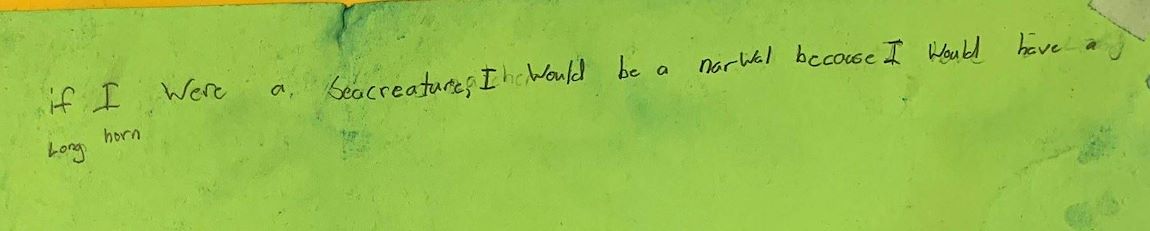 if I Were a Seacreature, I Would be a narWal becaose I Would have a
Long horn